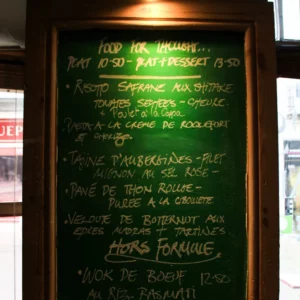 FOOD FOR THOUGHT...
PLAT 10.50 - PLAT + DESSERT 13.50
• RISOTTO SAFRANÉ AUX SHITAKE
TOMATES SÉCHÉES - CHÈVRE
+ Poulet a la
PASTA A LA CREME DE ROQUEFORT
ET CHORIZO
• TAJINE D'AUBERGINES - FILET
MIGNON AU SEL ROSE -
• PAVÉ DE THON ROUGE -
PURÉE A LA CIBOULETTE
• VELOUTÉ DE BUTTERNUT AUX
EPICES MADRAS + TARTINES
HORS FORMULE
• WOK DE BOEUF 12.50
AU RIZ BASMATI